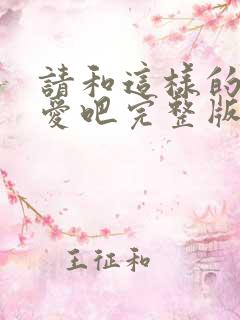 請和這樣的
愛吧完整版
王征和